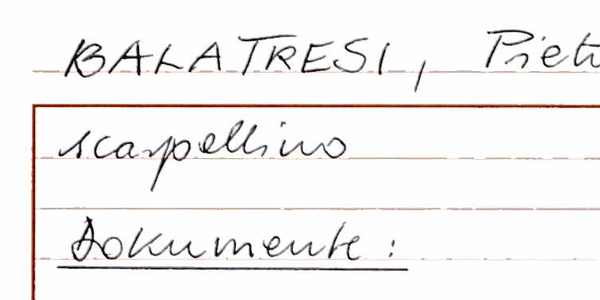 BALATRESI, Piet
scarpellino
Dokumente: